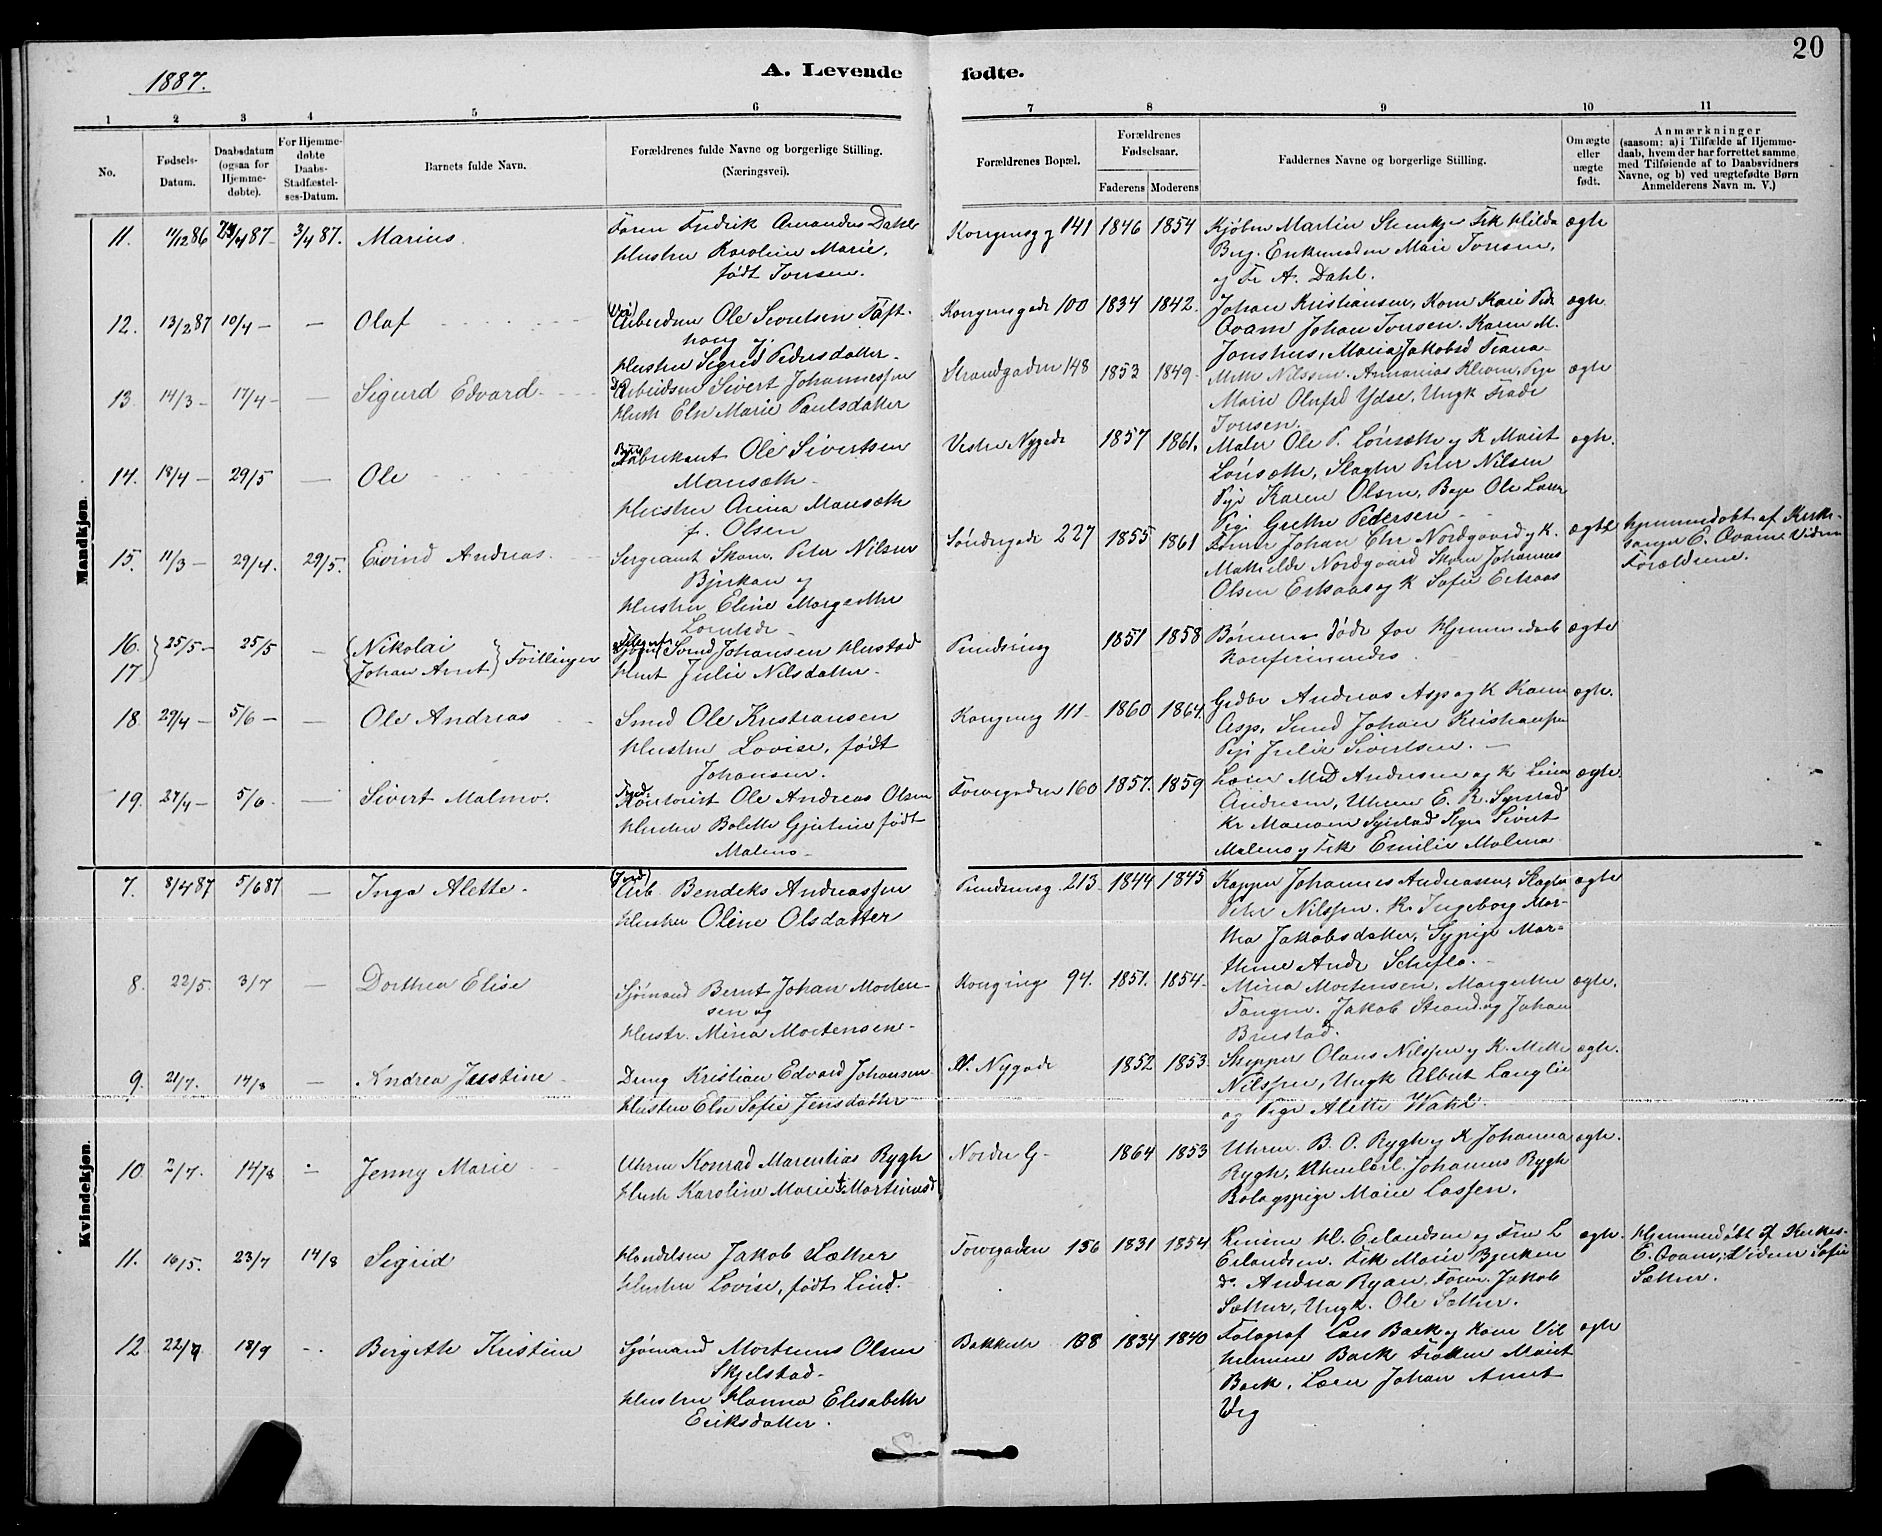 20
1887.
A. Levende fødte.
1 2 3 4 5 6 7 8 9 10 11
No.
Fødsels-
Datum.
Daabsdatum
(ogsaa for
Hjemme-
døbte).
For Hjemme-
døbte
Daabs-
Stadfæstel-
ses-Datum.
Barnets fulde Navn.
Forældrenes fulde Navne og borgerlige Stilling.
(Næringsvei).
Forældrenes Bopæl.
Forældrenes
Fødselsaar.
Faderens Moderens
Faddernes Navne og borgerlige Stilling.
Om ægte
eller
uægte
født.
Anmærkninger
(saasom: a) i Tilfælde af Hjemme-
daab, hvem der har forrettet samme,
med Tilføiende af to Daabsvidners
Navne, og b) ved uægtefødte Børn
Anmelderens Navn m. V.)
Mandkjøn.
11. 11/12 86 /4 87- 3/4 87. Marius.
Fredrik Amandus Dahl
Hustru Karoline Marie,
født Jonsen.
Kongensg 141 1846 1854
Martin Steinkjer Frk Hilda
Berg. Enkemaden Marie Jonsen,
og Fr A. Dahl.
ægte
12. 13/2 87 10/4 - - Olaf
Arbeidsm Ole Sivertsen Tøft-
haug og
Hustru Sigrid Pedersdatter.
Kongensgade 100 1834 1842.
Johan Kristiansen, Kone Kari
Qvam Johan Jonsen, Karen M.
Jonshus, Maria Jakobsd Trana.
ægte
13. 14/3 - 17/4 - - Sigurd Edvard.
Arbeidsm Sivert Johannessen
Hust Eln Marie Paulsdatter
Strandgaden 148 1853 1849.
Meth Nilssen. Annanias Pige
Marie Olufsd Ydse, Ungk
Jonsen.
ægte
14. 18/4 - 29/5 - Ole
Fabrikant Ole Sivertsen
Mansæth.
Hustru Anna Mansæth
f. Olsen
Vestre Nygade 1857 1861.
Maler Ole P. Lönsæth og K Marit
Lönsæth, Slagter Peter Nilsen
Pige Karen Olsen, Ole Larsen
Pige Grethe Pedersen
ægte.
15. 11/3 - 29/4. 29/5. Eivind Andreas.
Sergeant Skom. Peter Nilsen
Bjerkan og
Hustru Eline Margrethe
Søndregade 227 1855 1861
Johan Chr Nordgaard og K.
Mathilde Nordgaard Skom Johannes
Olsen og K Sofie
ægte
hjemmedøbt af Kirke-
sanger E. Qvam. Vidner
Forældrene.
16.
17 25/5 - 25/5 - Nikolai
Johan Arnt Tvillinger
Svend Johansen Hustad
Hust Julie Nilsdatter.
1851 1858
Børnene døde før Hjemmedaab
konfirmeredes.
ægte
18. 29/4 - 5/6 - - Ole Andreas
Smed Ole Kristiansen
Hustru Lovise, født
Johansen.
Kongensg 111 1860 1864.
Andreas Asp og K Karen
Asp, Smed Johan Kristiansen
Pige Julie Sivertsen.
ægte.
19. 27/4 - 5/6. - Sivert Malmo.
Kontorist Ole Andreas Olsen
Hustru Bolette Gjertine født
Malmo
Torvegaden 160 1857. 1859
Andresen og K Lina
Andresen, Uhrm E. R. Syrstad
Kr Syrstad Sivert
Malmo og Frk Emilie Malmo
ægte.
Kvindekjøn.
7. 8/4 87 5/6 87 - Inga Alette.
Arb. Bendeks Andreassen
Hustru Oline Olsdatter
213. 1844 1845
Johannes Andreassen, Slagter
Peter Nilssen. K. Ingeborg Mar-
tha Jakobsdatter, Sypige Mar-
ægte
8. 22/5. 3/7 - Dorthea Elise
Sjømand Bernt Johan Morten-
sen og
Hustr. Mina Mortensen.
94. 1851. 1854.
Mina Mortensen, Margrethe
Tangen. Jakob Strand og Johan
Brustad.
ægte.
9. 21/7. 14/8 - Andrea Justine
Kristian Edvard Johansen
Hustru Eln Sofie Jensdatter
V. Nygade 1852 1853.
Skipper Olaus Nilssen og K. Mette
Nilssen, Ungk Albert Langlie
og Pige Alette Wahl.
ægte.
10. 2/7. 14/8 - Jenny Marie
Uhrm Konrad Marentias Rygh
Hust Karoline Marie f. Martinusd
Nordre G 1864 1853
Uhrm. B. O. Rygh og K Johanna
Rygh, Johannes Rygh
Marie Lassen.
ægte.
11. 16/5. 23/7 14/8 Sigrid
Handelsm Jakob Sæther
Hustru Lovise, født Lind.
Torvegaden 156 1831 1854
H. Erlandsen og Fru L
Erlandsen. Frk Marie Bjerken
d. Andrea Ryan, Jakob
Sæther, Ungk. Ole Sæther.
ægte.
Hjemmedøbt af Kirkes.
E. Qvam, Vidner Sofie
Sæther.
12. 22/7 18/9 - Birgithe Kristine
Sjømand Mortinus Olsen
Skjelstad.
Hustru Hanna Elisabeth
Eriksdatter.
188 1834 1840
Fotograf Lars Baek og Kone Vil
helmine Baek Frøken Marit
Baek, Lærer Johan Arnet
Veg
ægte